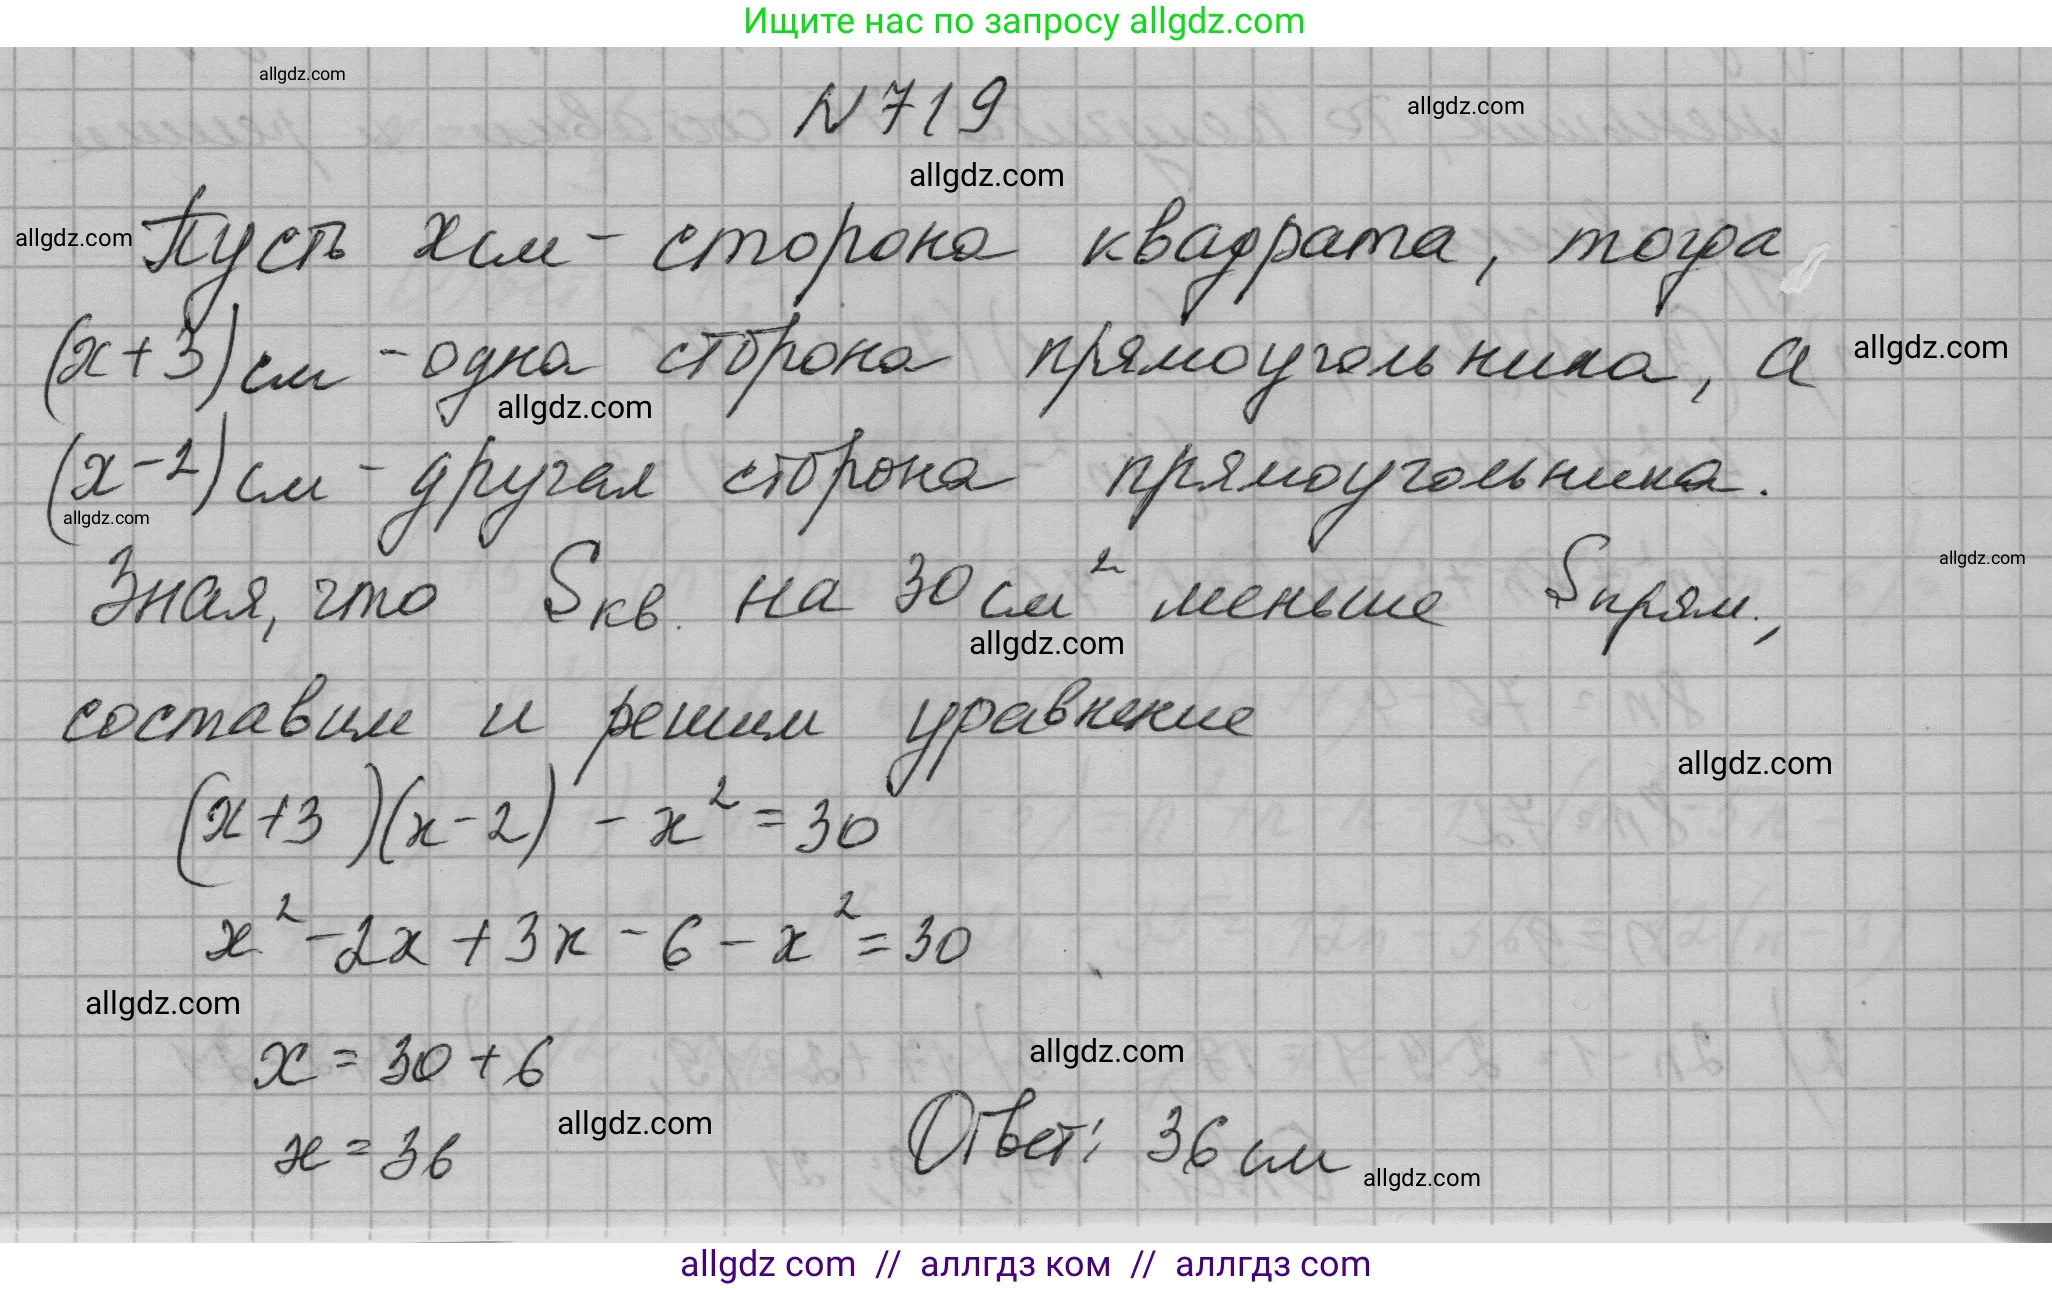 Ищите нас по запросу allgdz.com
allgdz.com
N 719
allgdz.com
allgdz.com
allgdz.com Пусть x см - сторона квадрата, тогда
(x+3) см - одна сторона прямоугольника, а allgdz.com
allgdz.com
(x-2) см - другая сторона прямоугольника.
allgdz.com
Зная, что Sкв. на 30 см² меньше Sпрям.,
allgdz.com
allgdz.com
составим и решим уравнение
allgdz.com
(x+3)(x-2) - x² = 30
x² - 2x + 3x - 6 - x² = 30
allgdz.com
x = 30 + 6
allgdz.com
allgdz.com
x = 36
Ответ: 36 см
allgdz.com
allgdz com // аллгдз ком // аллгдз com